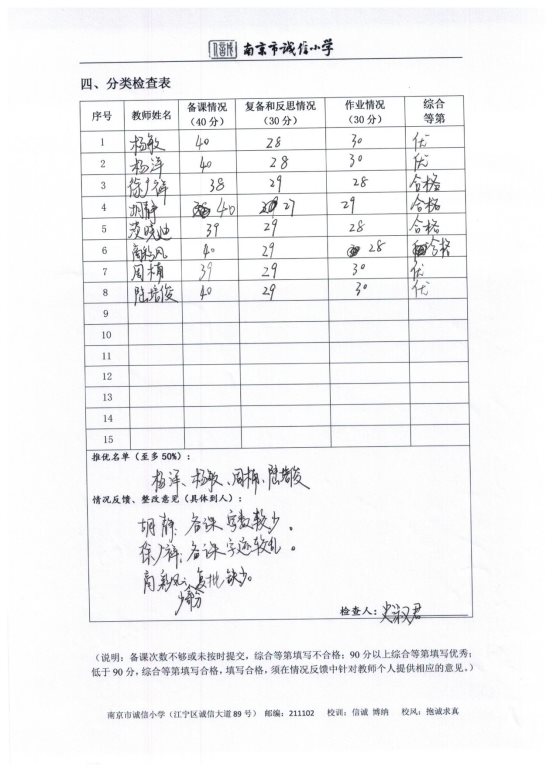 南京市诚信小学
四、分类检查表
序号 教师姓名 备课情况（40分） 复备和反思情况（30分） 作业情况（30分） 综合等第
1 杨敏 40 28 30 优
2 杨洋 40 28 30 优
3 徐广祥 38 29 28 合格
4 胡静 40 27 29 合格
5 晓迪 39 29 28 合格
6 40 29 28 合格
7 周楠 39 29 30 优
8 陆培俊 40 29 30 优
9
10
11
12
13
14
15
推优名单（至多50%）：
杨洋、杨敏、周楠、陆培俊
情况反馈、整改意见（具体到人）：
胡静：备课字数较少。
徐广祥：备课字迹较乱。
复批缺少。
检查人：史淑君
（说明：备课次数不够或未按时提交，综合等第填写不合格；90分以上综合等第填写优秀；
低于90分，综合等第填写合格，填写合格，须在情况反馈中针对教师个人提供相应的意见。）
南京市诚信小学（江宁区诚信大道89号） 邮编：211102 校训：信诚 博纳 校风：抱诚求真